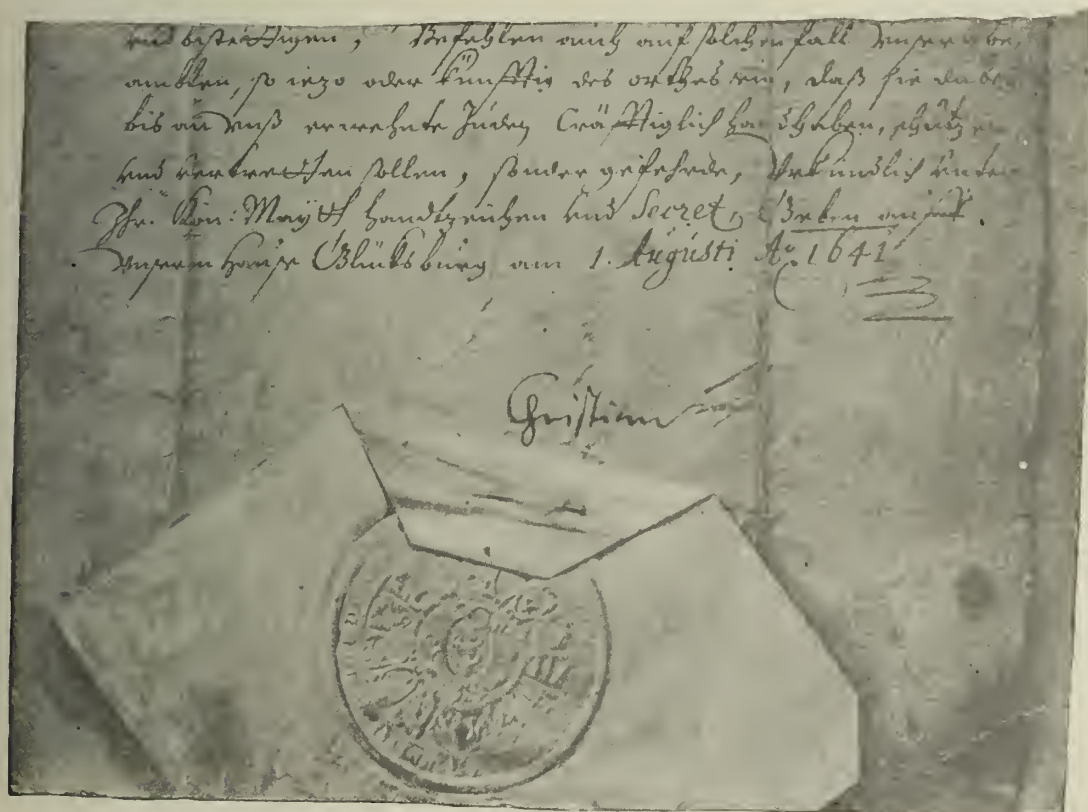 und bestettigen, Befehlen auch auf solchen fall unsern be,
ambten, so iezo oder künfftig des orthes sein, daß sie dabei
bis an unß erwehnte Juden Cräfftiglich handthaben, schützen
und vertretten sollen, sonder gefehrde, Uhrkundlich unter
Ihr. Kön: Maytt handtzeichen und Secret, Geben auf
unserm Hause Glücksburg am 1. Augusti Ao. 1641
Christian